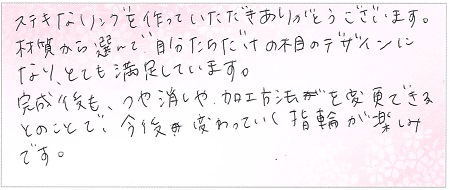 ステキなリングを作っていただきありがとうございます。
材質から選んで自分たちだけの木目のデザインに
なり、とても満足しています。
完成後も、つや消しや加工方法を変更できる
とのことで、今後変わっていく指輪が楽しみ
です。